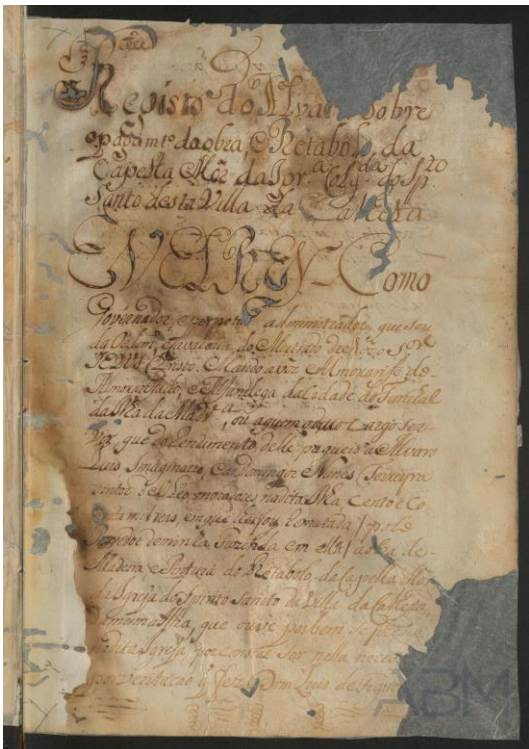 Registo do Alvara Sobre
o pagam.to da obra e Retabolo da
Capella Mor da Igr.a Coleg.da do Sp.to
Santo desta Villa da Calheta
EU ELREY Como
Governador, e perpetuo administrador, que sou
da Ordem, e cavalaria do Mestrado de Nosso S.or
Christo. Mando a vós Almoxarife de
Almoxarifado, e Alfandega da Cidade do Funchal
da Ilha da Mad.ra, ou a quem o dito Cargo ser-
vir, que do Rendimento delle pagueis a Alvaro
Luis Imaginario, e a Domingos Nunes Teixeyra
Pintor e moradores na dita Ilha, cento e co-
renta mil reis, em que
fazenda em a obra de-
Madeira e Pintura do Retabolo da Capella Mor
da Igreja do Spirito Santo da Villa da Calheta
da mesma Ilha, que ouve por bem se
na dita Igreja por constar ser nella neces
por
ABM